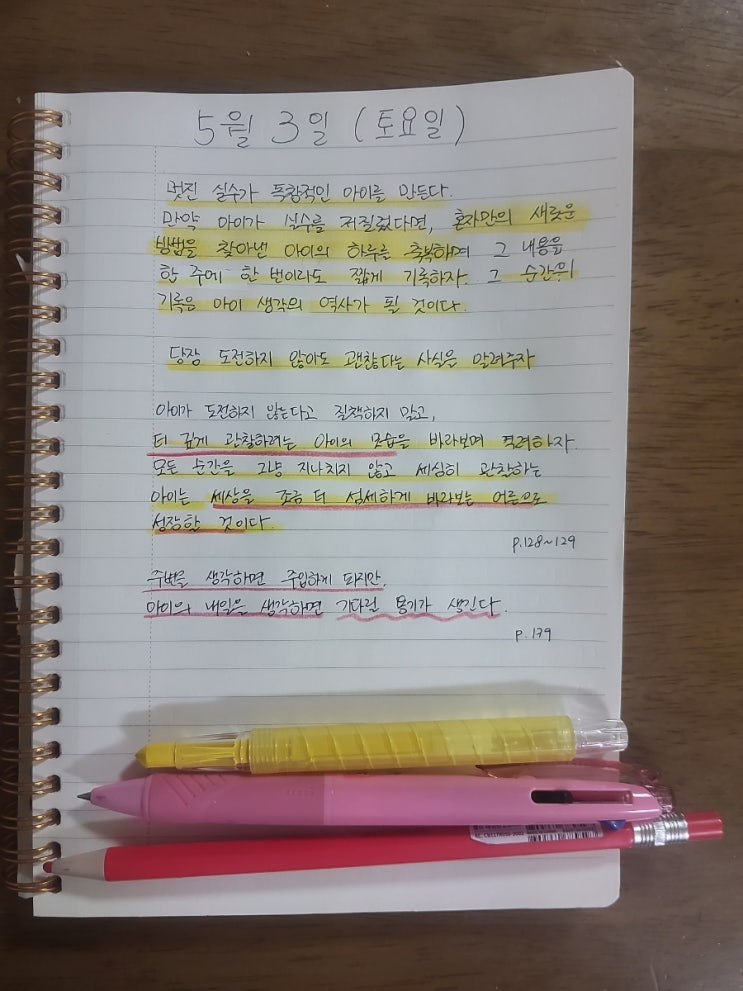 5월 3일 (토요일)
멋진 실수가 독창적인 아이를 만든다.
만약 아이가 실수를 저질렀다면, 혼자만의 새로운
방법을 찾아낸 아이의 하루를 축복하며 그 내용을
한 주에 한 번이라도 짧게 기록하자. 그 순간의
기록은 아이 생각의 역사가 될 것이다.
당장 도전하지 않아도 괜찮다는 사실을 알려주자
아이가 도전하지 않는다고 질책하지 말고,
더 깊게 관찰하려는 아이의 모습을 바라보며 격려하자.
모든 순간을 그냥 지나치지 않고 세심히 관찰하는
아이는 세상을 조금 더 섬세하게 바라보는 어른으로
성장할 것이다.
p.128~129
주변을 생각하면 주입하게 되지만,
아이의 내일을 생각하면 기다릴 용기가 생긴다.
p.139